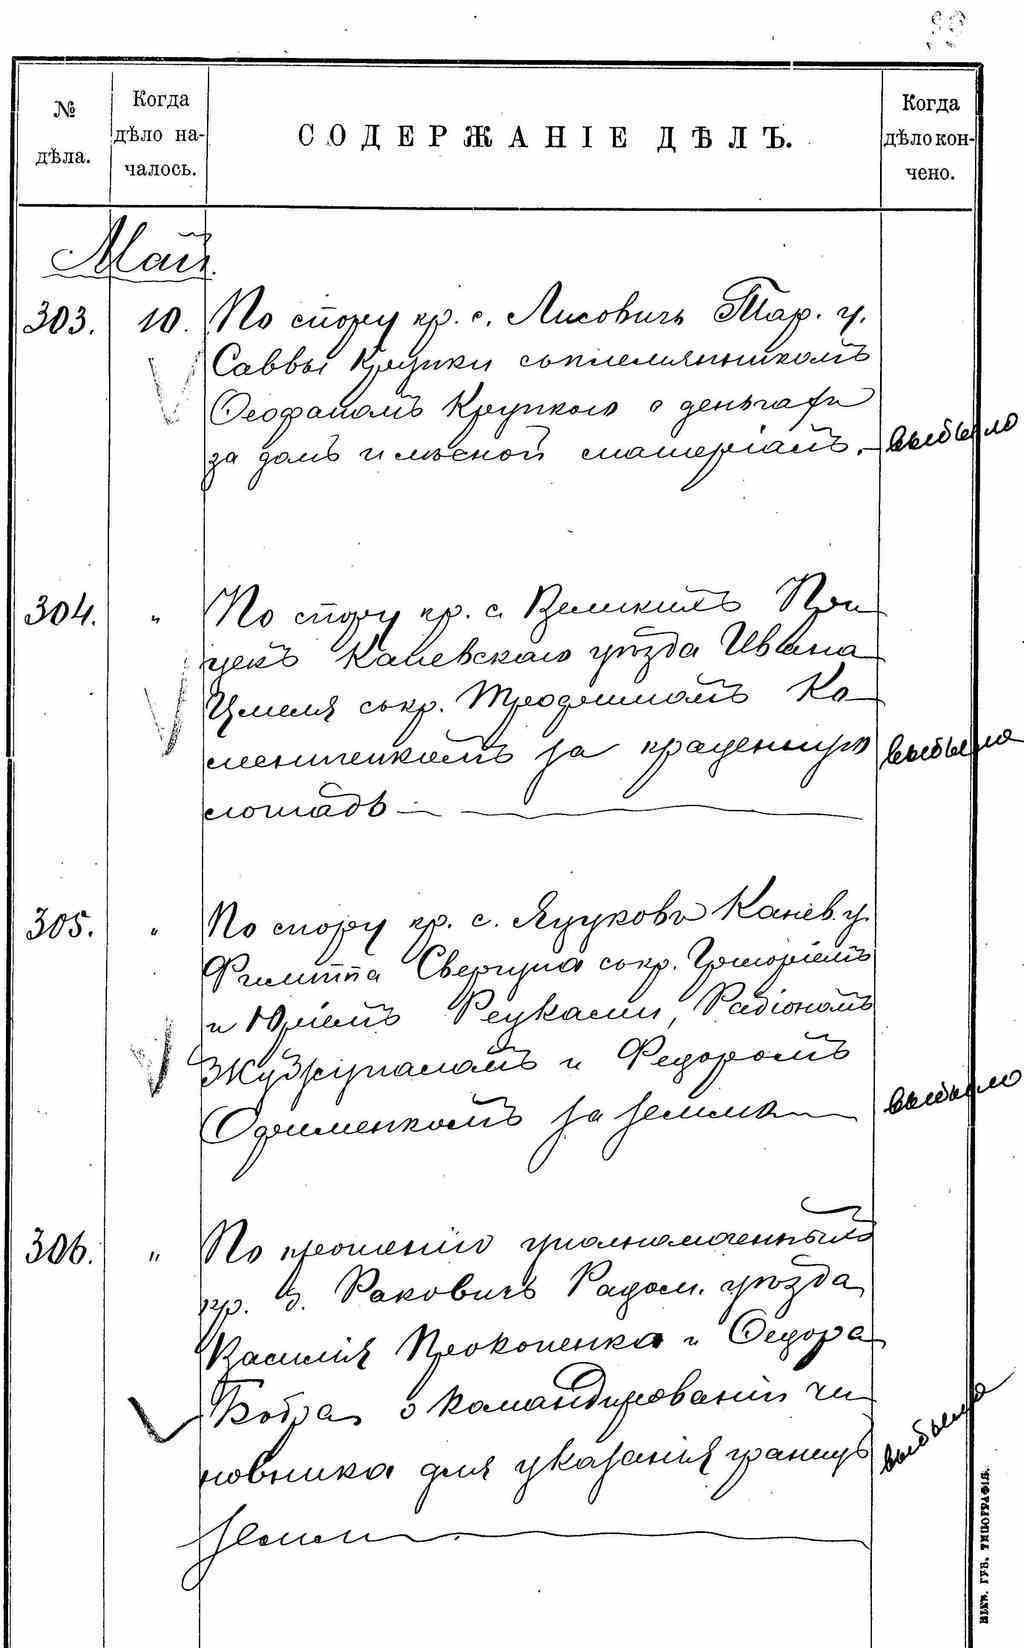 № дѣла.
Когда дѣло на-чалось.
СОДЕРЖАНІЕ ДѢЛЪ.
Когда дѣло кон-чено.
Май.
303. 10. По спору кр. с. Лисовичъ Тар. у.
Саввы Крупки съ племянникомъ
Ѳеофаномъ Крупкою о деньгахъ
за домъ и лѣсной матеріалъ. выбыло
304. " По спору кр. с. Великихъ При
цекъ Каневскаго уѣзда Ивана
съ кр. Трофимомъ Ка
за краденную выбыло
лошадь
305. " По спору кр. с. Яцуковъ Канев. у.
Филиппа Свергуна съ кр. Григоріемъ
и Юріемъ Рецками, Радіономъ
и Федоромъ
за землю выбыло
306. " По прошенію уполномоченныхъ
кр. д. Раковичъ Радом. уѣзда
Василія Прокопенка и Ѳедора
Бобра о командированіи чи
новника для указанія границъ выбыло
земли
КІЕВ. ГУБ. ТИПОГРАФІЯ.